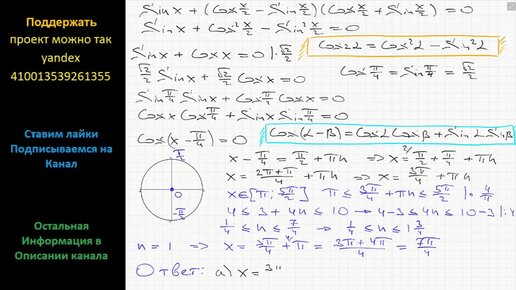 Поддержать
проект можно так
yandex
410013539261355
Ставим лайки
Подписываемся на
Канал
Остальная
Информация в
Описании канала
Sin x + (Cos x/2 − Sin x/2)(Cos x/2 + Sin x/2) = 0
Sin x + Cos² x/2 − Sin² x/2 = 0
Sin x + Cos x = 0 |· √2/2
Cos 2α = Cos²α − Sin²α
√2/2 Sin x + √2/2 Cos x = 0
Cos π/4 = Sin π/4 = √2/2
Sin π/4 Sin x + Cos π/4 Cos x = 0
Cos x Cos π/4 + Sin x Sin π/4 = 0
Cos(x − π/4) = 0
Cos(α − β) = Cos α Cos β + Sin α Sin β
π/2
0
−π/2
x − π/4 = π/2 + πn => x = π/2 + π/4 + πn
x = 2π + π/4 + πn => x = 3π/4 + πn
x ∈ [π; 5π/2] π ≤ 3π/4 + πn ≤ 5π/2 |· 4/π
4 ≤ 3 + 4n ≤ 10 → 4 − 3 ≤ 4n ≤ 10 − 3 |: 4
1/4 ≤ n ≤ 7/4 → 1/4 ≤ n ≤ 1 3/4
n = 1 => x = 3π/4 + π = 3π + 4π/4 = 7π/4
Ответ: а) x = 3π